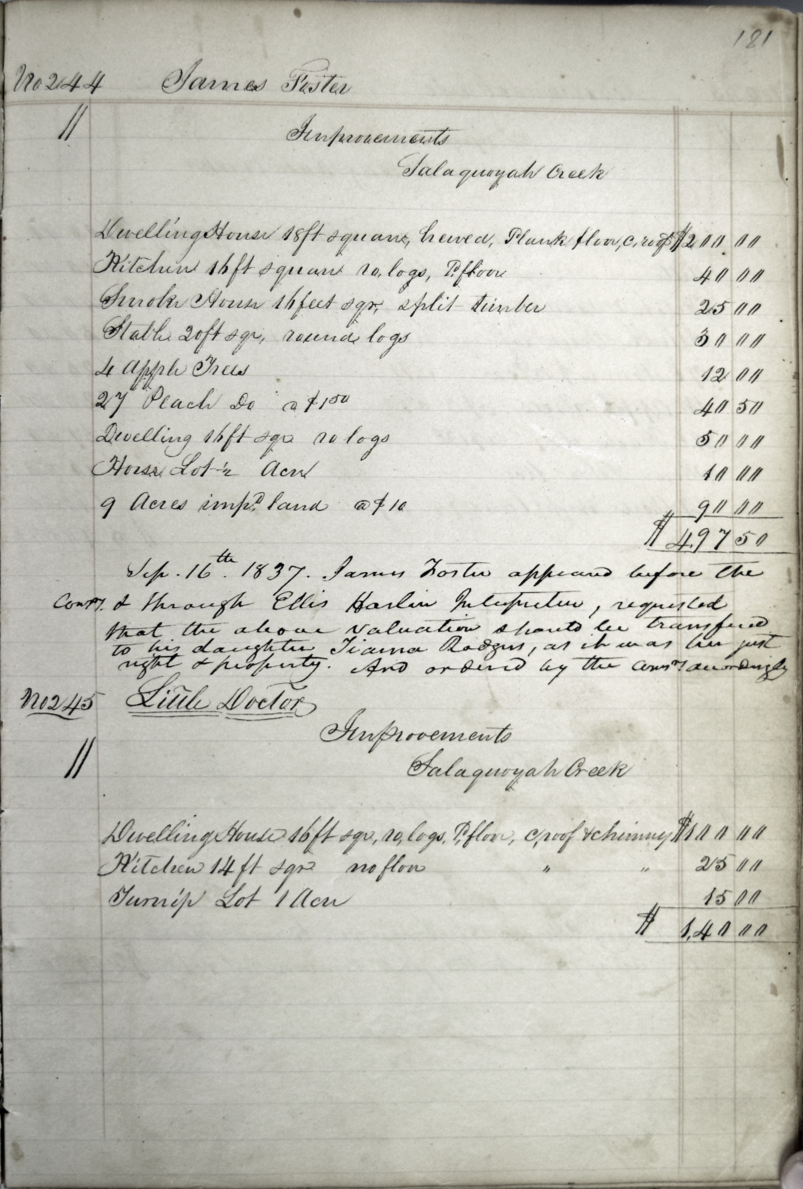 181
No 244 James Foster
" Improvements
Salaquoyah Creek
Dwelling House 18ft square, hewed, Plank floor, c, roof $200 00
Kitchen 16ft square ro, logs, P. floor 40 00
Smoke House 16feet sqr, split timber 25 00
Stable 20ft sqr, round logs 30 00
4 Apple Trees 12 00
27 Peach Do a $1 50 40 50
Dwelling 16ft sqr ro logs 50 00
Horse Lot ½ Acre 10 00
9 Acres impd land a $10 90 00
$ 497 50
Sep. 16th 1837. James Foster appeared before the
Comrs. & through Ellis Harlin Interpreter, requested
that the above valuation should be transfered
to his daughter Tianna Rodgers, as it was her just
right & property. And ordered by the Comrs accordingly
No 245 Little Doctor
" Improvements
Salaquoyah Creek
Dwelling House 16ft sqr, ro, logs, P. floor, c, roof & chimney $100 00
Kitchen 14ft sqr no floor " " 25 00
Turnip Lot 1 Acre 15 00
$ 140 00